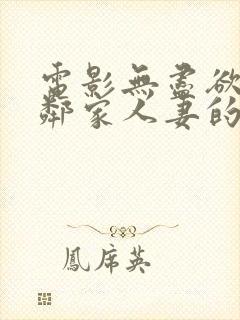 電影無盡欲
鄰家人妻的
鳳席英